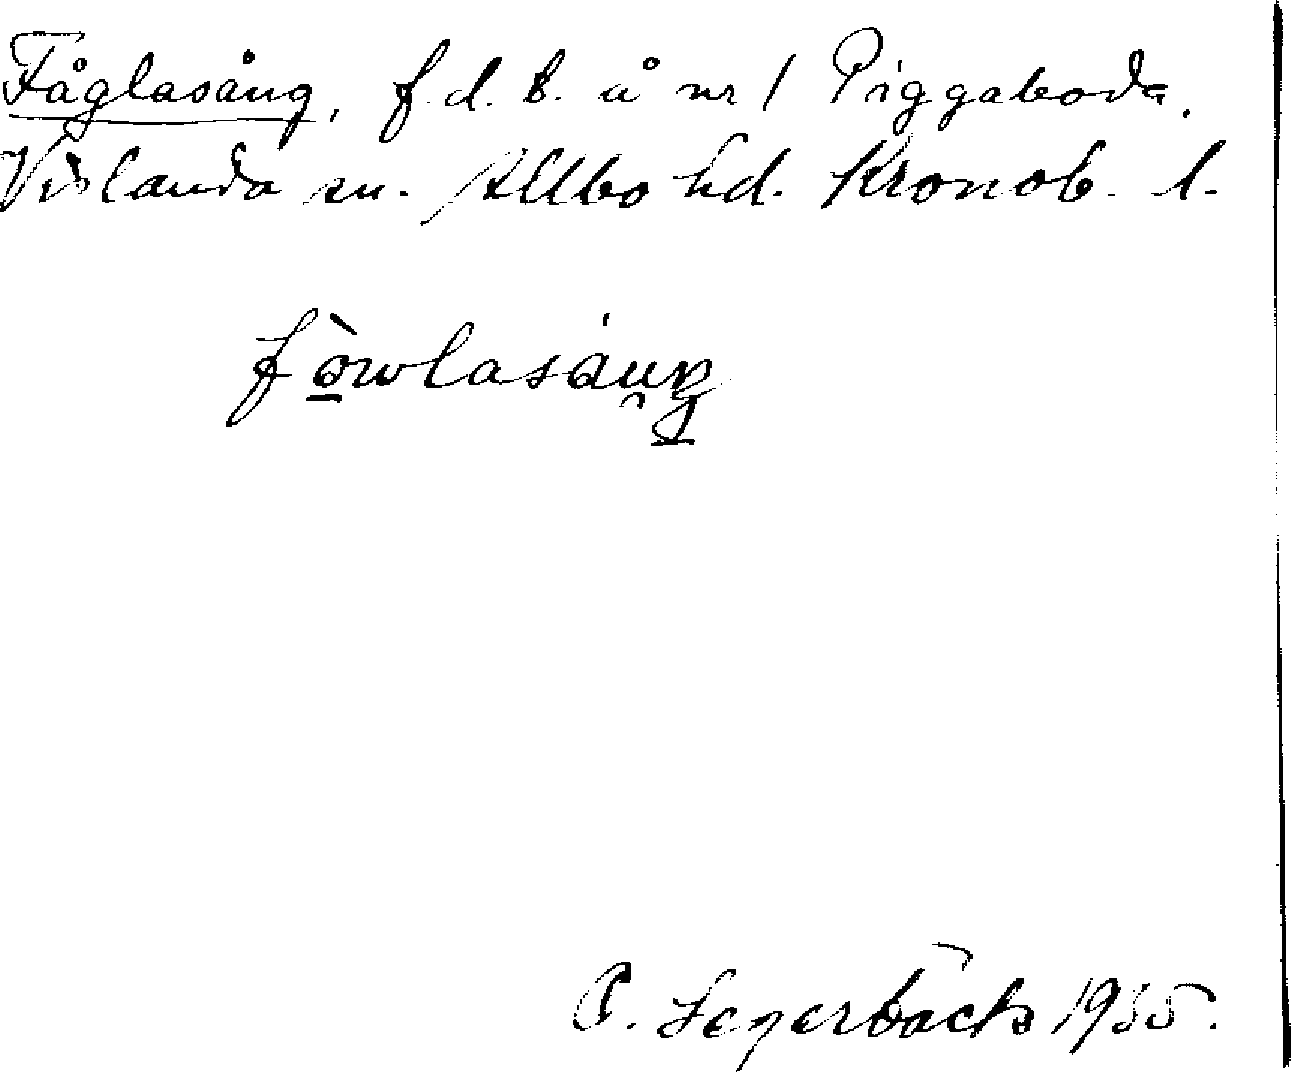 Fåglasång, f. d. b. å nr 1 Piggaboda.
Vislanda sn. Allbo hd. Kronob. l.
fòwlasáuŋ
P. Segerbäck 1935.